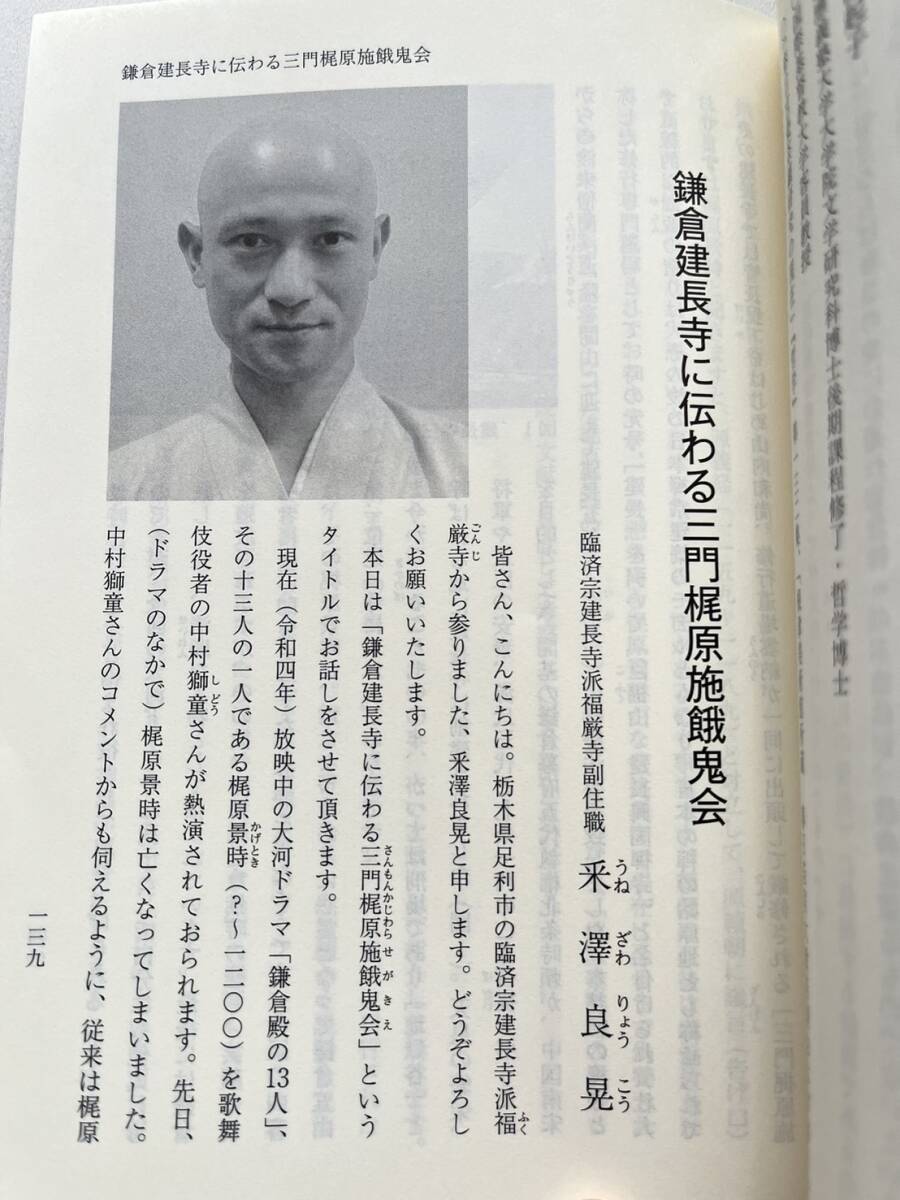 鎌倉建長寺に伝わる三門梶原施餓鬼会
鎌倉建長寺に伝わる三門梶原施餓鬼会
臨済宗建長寺派福厳寺副住職 釆澤良晃
うねざわりょうこう
皆さん、こんにちは。栃木県足利市の臨済宗建長寺派福
ふく
厳寺から参りました、釆澤良晃と申します。どうぞよろし
ごんじ
くお願いいたします。
本日は「鎌倉建長寺に伝わる三門梶原施餓鬼会」という
さんもんかじわらせがきえ
タイトルでお話しをさせて頂きます。
現在（令和四年）放映中の大河ドラマ「鎌倉殿の13人」、
その十三人の一人である梶原景時（？～一二〇〇）を歌舞
かげとき
伎役者の中村獅童さんが熱演されておられます。先日、
しどう
（ドラマのなかで）梶原景時は亡くなってしまいました。
中村獅童さんのコメントからも伺えるように、従来は梶原
一三九
大学院文学研究科博士後期課程修了・哲学博士